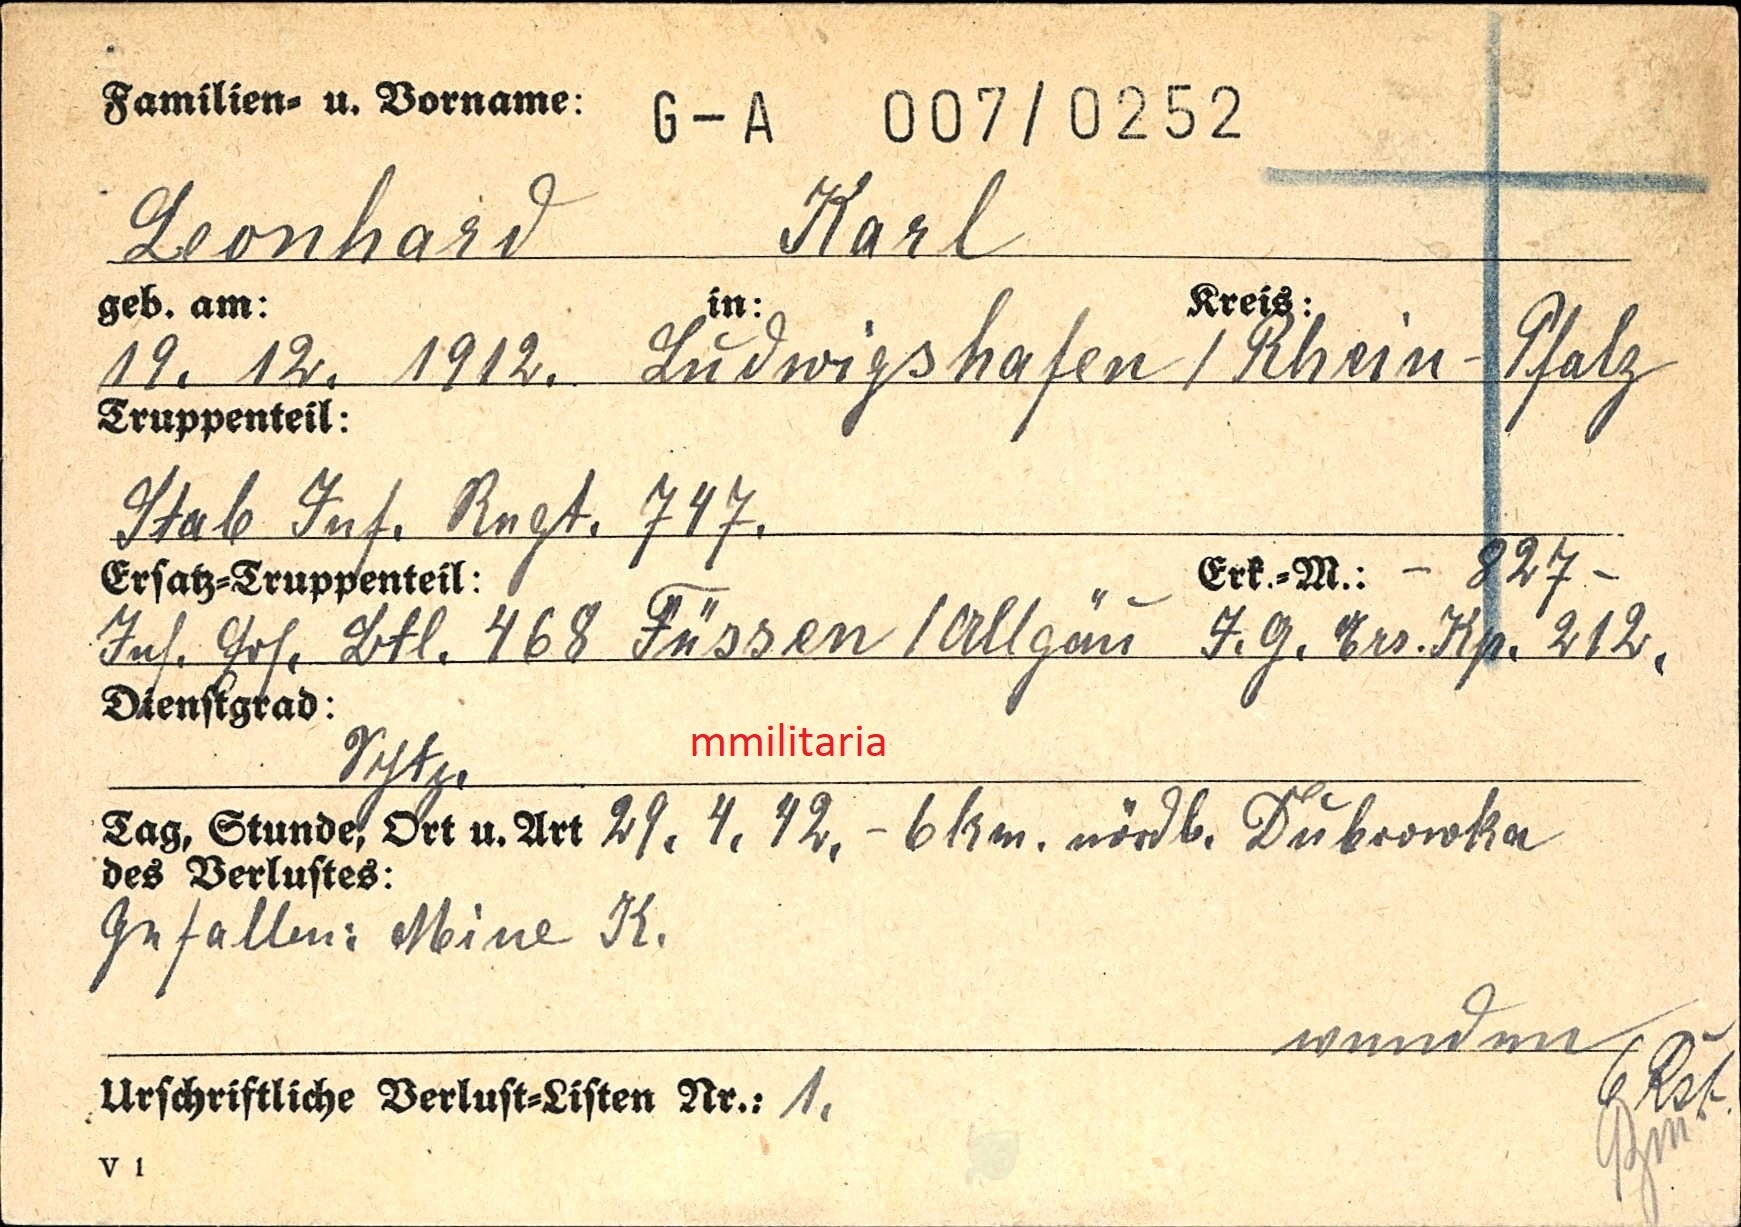 Familien- u. Vorname: G-A 007/0252
Leonhard Karl
geb. am: in: Kreis:
19. 12. 1912. Ludwigshafen / Rhein - Pfalz
Truppenteil:
Stab Inf. Regt. 747.
Ersatz-Truppenteil: Erk.-M.: - 827 -
Inf. Ers. Btl. 468 Füssen / Allgäu I.G. Ers. Kp. 212.
Dienstgrad:
Schtz.
mmilitaria
Tag, Stunde, Ort u. Art 29. 4. 42. - 6 km. nördl. Dubrowka
des Verlustes:
Gefallen: Mine K.
Urschriftliche Verlust-Listen Nr.: 1.
V 1